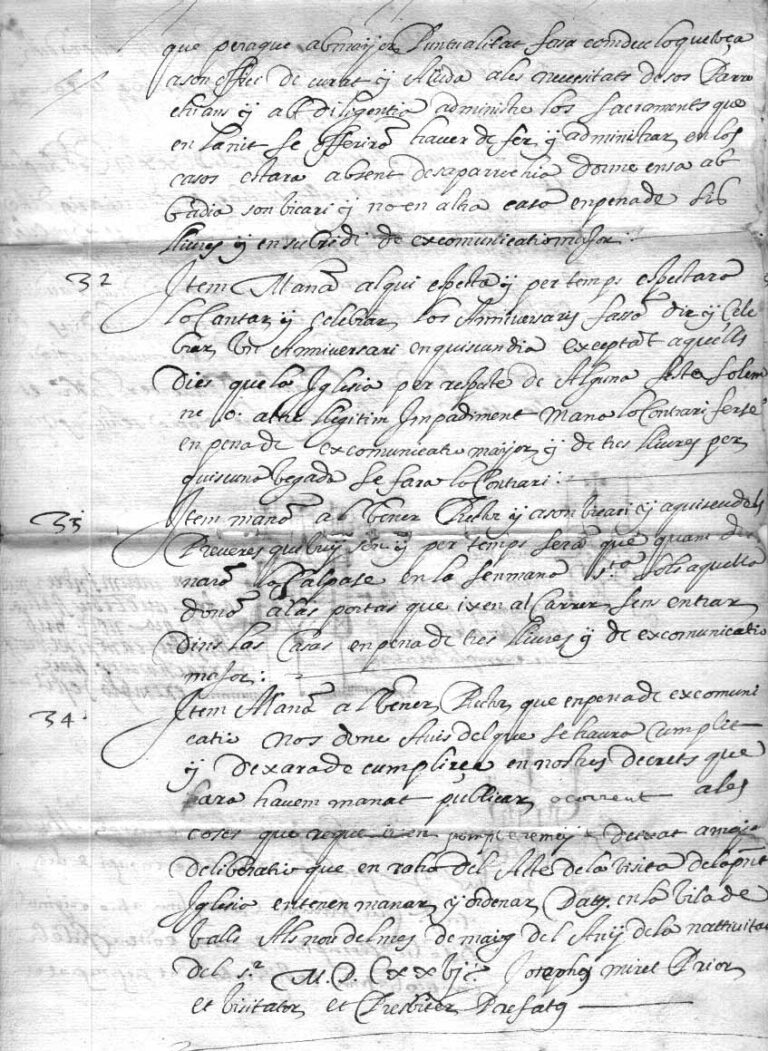 que peraque ab major Puntualitat fasa com deu lo que toca
a son offici de curat y Aiuda a les necesitats de sos Parro
chians y ab diligentia administre los sacraments que
en la nit se offeriran haver de fer y administrar en los
casos estara absent de sa parrochia done ensa ab
badia son vicari y no en altra casa en pena de sis
lliures y en subsidi de excomunicatio major:
32 Item Manã al qui especta y per temps espectara
lo Cantar y Celebrar los Anniversaris fassã dir y Cele
brar un Anniversari en quiscun dia exceptat aquells
Dies que la Iglesia per respate de Alguna festa solem
ne o altre llegitim Impadiment mana lo Contrari ferse
en pena de excomunicatio major y de tres lliures per
quiscuna vegada se fara lo Contrari:
33 Item manã al Vener. Rector y a son vicari y a quiscu dels
Preveres qui vuy son y per temps serã que quam do
narã lo Salpase en la senmana sta. sols aquella
donã a las portas que ixen al Carrer sens entrar
dins las Casas en pena de tres lliures y de excomunicatio
major:
34. Item Manã al Vener. Rector que en pena de excomuni
catio nos done Avis del que se haura cumplit
y dexara de cumplirse en nostres decrets que
hara havem manat publicar ocorrent a les
coses que
deliberatio que en ratio del Acte de la visita de la pnt
Iglesia entenem manar y ordenar Datt. en la Vila de
Valls Als nou del mes de maig del Any de la nattivitat
del Sr. M.D.C.xxvj. Josephus miret Prior
et Visitator et Presbiter Prefatus